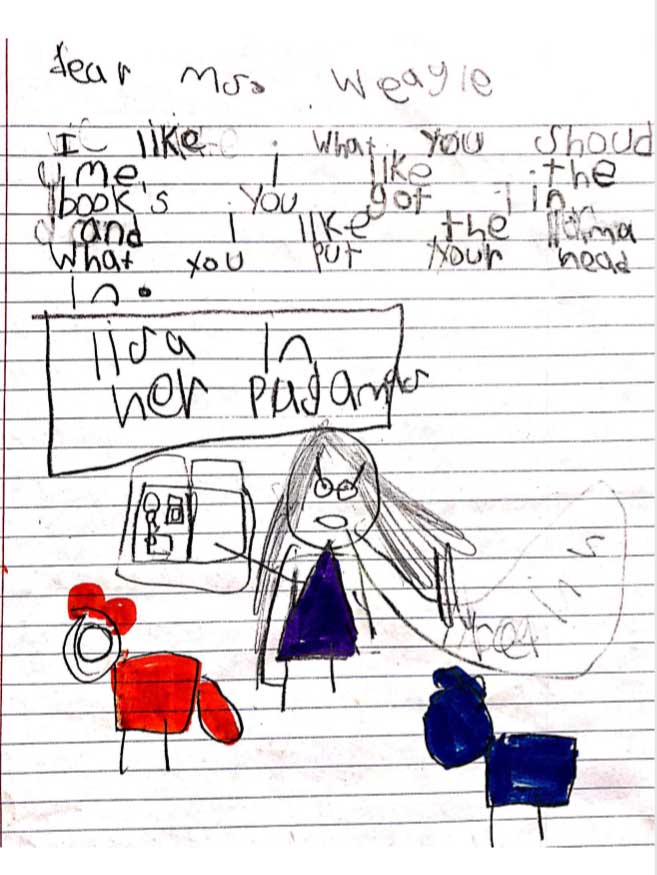 dear Mrs. Weagle
I like what you shoud
me I like the
book's you got in
and I like the llama
what you put your head
in.
llsa in
her padamas